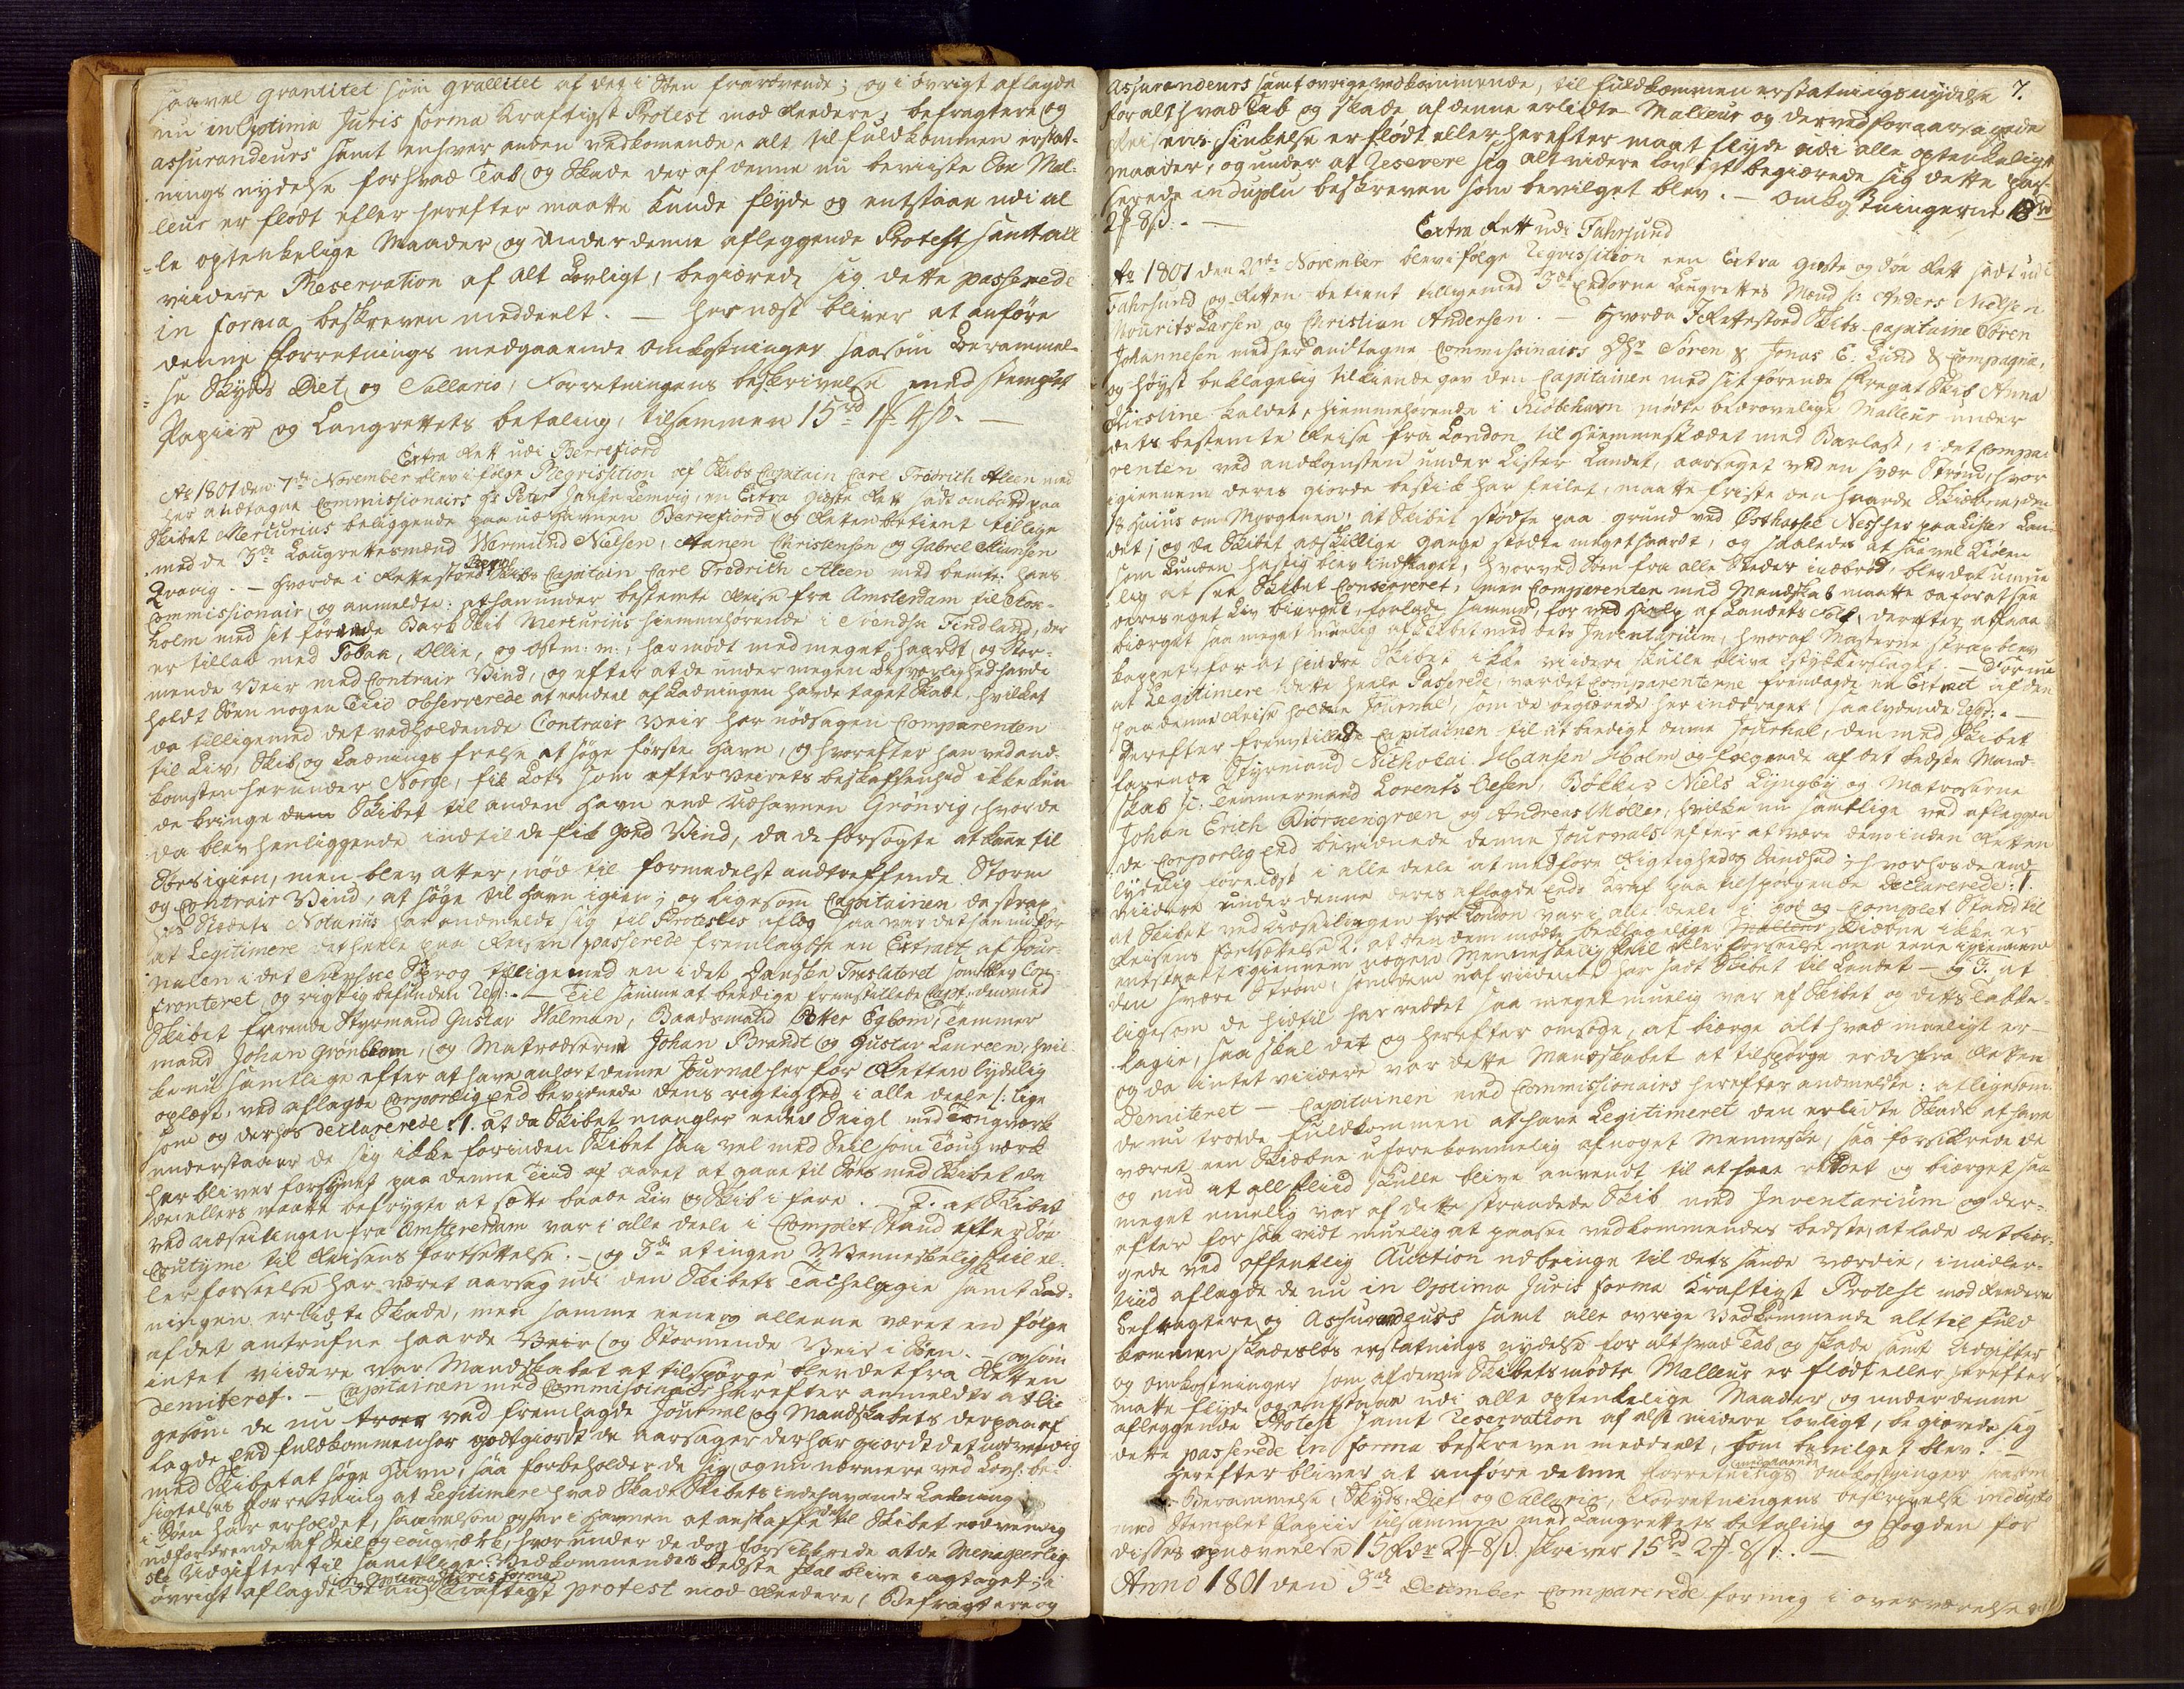 saavel qvantitet som qvallitet af det i Søen fraværende; og i øvrigt aflagde
nu in Optima Juris forma Kraftigst Protest mod Reedere, befragtere og
assurandeurs samt enhver anden vedkommende, alt til fuldkommen erstat-
nings nydelse for hvad Tab og Skade der af denne nu beviiste Søe Mal-
leur er flødt eller herefter maatte kunde flyde og entstaae udi al
le optenkelige Maader og under denne afleggende Protest samt all
viidere Reservation af alt Lovligt, begiærede sig dette passerede
in forma beskreven meddeelt. — Hernæst bliver at anføre
denne Forretnings medgaaende omkostninger saasom Berammel-
se Skyds Diet og Sallario, Forretningens beskrivelse med stemplet
Papiir og Laugrettets betaling, tilsammen 15rd 1f 4s. —
Extra Rett udi Berrefiord
Ao 1801 den 7de November blev i følge Reqvisition af Skibs Capitain Carl Fredrich Aleen med
her antagne Commissionairs Hr Peter Jansen Lemvig, en Extra giæste Rett sadt ombord paa
Skibet Mercurius beliggende paa udhavnen Berrefiord og Retten betient tillige
med de 3de Laugrettesmænd Wermund Nielsen, Aanen Christensen og Gabrel Aamunsen
Qvavig. — Hvorda i Rettestoed Skibs Capitain Carl Fredrich Aleen med bemte hans
Commissionair, og anmeldte: at han under bestemte Reise fra Amsterdam til Stok-
holm med sit førende Bark Skib Mercurius hiemmehørende i Svendsk Findland, der
er tillad med Toban, Ollie, og Ost m: m:, har mødt med meget haardt og Stor-
mende Veir med Contrair Vind, og efter at de under megen besværlighed havde
holdt Søen nogen Tiid observerede at eendeel af Ladningen havde taget Skade, hvilket
da tilligemed det vedholdende Contrair Veir har nødsagen Comparenten
til Liv, Skib og Ladnings frelse at søge første Havn, og hvorefter han ved and-
komsten her under Norge, fik Lots som efter Veirets beskaffenhed ikke kun
de bringe dem Skibet til anden Havn end udhavnen Grønvig, hvor de
da blev henliggende indtil de fik good Vind, da de forsøgte at kune til
Søes igien, men blev atter, nød til formedelst andtreffende Storm
og Contrair Vind, at søge til Havn igien; og ligesom Capitainen da strax
hos Stedets Notarius har andmeldt sig til Protestes aflæg, saa var det han nu for
at Legitimere det heele paa Reisen passerede fremlagde en Extract af Jour-
nalen i det Svenske Sprog tilligemed en i det Danske Translateret som blev Con-
fronteret og rigtig befunden Reg: — Til samme at beædige fremstillede Capt: den med
Skibet farende Styrmand Gustav Walman, Baadsmand Petter Egbom, Temmer
mand Johan Grønblom, og Matroserne Johan Brandt og Gustav Laureen, hvil-
ke nu samtlige efter at have anhørt denne Journal her for Retten lydelig
oplæst, ved aflagde Corporlig Eed bevidnede dens rigtighed i alle deele, lige
som og derhos declarerede: 1. at da Skibet mangler endeel Seigl med Tougværk
understaaer de sig ikke forinden Skibet saa vel med Seil som Tougværk
her bliver forsynet paa denne Tiid af aaret at gaae til Søes med Skibet da
de ellers maatte befrygte at sette baade Liv og Skib i fare. 2. at Skibet
ved udseilingen fra Amsterdam var i alle deele i Complet Stand efter Søe
Coutyme til Reisens fortsettelse. — og 3de at ingen Menneskelig feil el-
ler forseelse har været aarsag udi den Skibets Tachelagie samt Lad-
ningen erlidte Skade, men samme eene og alleene været en følge
af det antrufne haarde Veir og Stormende Veir i Søen. — og som
intet viidere var Mandskabet at tilspørge blev det fra Retten
demiteret. — Capitainen med Commissionair herefter anmeldte at li-
gesom de nu troer ved fremlagde Journal og Mandskabets derpaa af
lagde Eed fuldkommen har godtgiordt de aarsager der har giordt det nødvendig
med Skibet at søge Havn, saa forbeholder de sig og nu nærmere ved Lovf: be-
sigtelses forretning at Legitimere hvad Skade Skibets indehavende Ladning
i Søen har erholdet, saavelsom og her i Havnen at anskaffe det til Skibet nødvendig
udfordrende af Seil og Tougværk, hvorunder de dog forsikkrede at de Menagerlig
ste Udgifter til samtlige Vedkommendes bedste skal blive iagtaget; i
øvrigt aflagde de nu in optima Juris forma Kraftigst protest mod Reedere, Befragtere og
7.
Assurandeurs samt øvrige vedkommende, til fuldkommen erstatnings nydelse
for alt hvad Tab og Skade af denne erlidte Malleur og derved foraarsagede
Reisens sinkelse er flødt eller herefter maat flyde udi alle optenkelige
maader, og under at Reservere sig alt videre Lovligt begiærede sig dette pas-
serede in duplu beskreven som bevilget blev. — Omkostningerne 18rd
2f 8s. —
Extra Rett udi Fahrsund
Ao 1801 den 20de November blev i følge Reqvisition een Extra gieste og Søe Rett sadt udi
Fahrsund og Retten betient tilligemed 3de Eedsorne Laugrettes Mænd s: Anders Nielsen
Mourits Larsen og Christian Andersen. — Hvorda I Rettestoed Skibs-Capitaine Søren
Johannesen med her andtagne Commissionairs Hr Søren & Jonas E: Lund & Compagnie,
og høyst beklagelig tilkiende gav den Capitainen med sit førende Fregat Skib Anna
Kirstine kaldet, hiemmehørende i Kiøbehavn mødte bedrøvelige Malleur under
dets bestemte Reise fra London til Hiemmestædet med Barlast, i det Compa-
renten ved andkomsten under Lister Landet, aarsaget ved en svær Strøm, hvor
igiennem deres giorde bestik har feilet, maatte friste den haarde Skiæbne, den
18 hujus om Morgenen, at Skibet stødte paa grund ved Østhassel Nes her paa Lister Lan-
det, og da Skibet adskillige gange stødte meget haardt, og saaledes at saavel Kiølen
som Bunden hastig blev indstaget, hvorved Søen fra alle Steder indbrød, blev det umue
lig at see Skibet Conserveret, men Comparenten med Mandskab maatte da for at see
deres eget Liv bierget, forlade samme, for ved hielp af Landets Folk, derefter at faae
bierget saa meget muelig af Skibet med dets Inventarium, hvoraf Masterne strax blev
kappet for at hindre Skibet ikke viidere skulle blive istykkerslagt. — For nu
at Legitimere dette heele Passerede, var det Comparenterne fremlagde en Extract af den
paa denne Reise holdne Journal, som de begiærede her inddraget, saalydende Reg: —
Derefter fremstillede Capitainen til at beedigt denne Journal, den med Skibet
farende Styrmand Nicholai Hansen Holm og følgende af det bedste Mand-
skab s: Temmermand Lorents Olesen, Bøkker Niels Lyngbye og Matroserne
Johan Erich Biørnengreen og Andreas Møller, hvilke nu samtlige ved afleggen
de Corporlig Eed bevidnede denne Journals efter at være dem inden Retten
lydelig forelæst i alle deele at medføre Rigtighed og Sandhed; hvorhos de end
viidere under denne deres aflagde Eeds Kraf paa tilspørgende declarerede: 1.
at Skibet ved udseilingen fra London var i alle deele i god og Complet Stand til
Reisens fortsettelse 2. at den dem mødte beklagelige Malleur Skiæbne ikke er
entstaaet igiennem nogen Menneskelig feil eller forseelse men eene igiennem
den svære Strøm, som dem uafvidende har sadt Skibet til Landet — og 3. at
ligesom de hidtil har reddet saa meget muelig var af Skibet og dets Takke-
lagie, saa skal det og herefter omsøge, at bierge alt hvad mueligt er —
og da intet viidere var dette Mandskabet at tilspørge er de fra Retten
Demiteret — Capitainen med Commissionairs herefter andmeldte: at ligesom
de nu troede fuldkommen at have Legitimeret den erlidte Skade at have
været een Skiæbne uforekommelig af noget Menneske, saa forsikrede de
og nu at all fliid skulle blive anvendt til at faae reddet og bierget saa
meget muelig var af dette strandede Skib med Inventarium og der-
efter for saavidt muelig at paasee vedkommendes bedste, at lade det bier-
gede ved offentlig Auction udbringe til dets sande værdie, imidler-
tiid aflagde de nu in Optima Juris forma Kraftigst Protest mod Reedere
Befragtere og Assurandeurs samt alle øvrige Vedkommende alt til fuld
kommen skadesløs erstatnings nydelse for alt hvad Tab og skade samt Udgifter
og omkostninger som af denne Skibets mødte Malleur er flødt eller herefter
matte flyde og entstaae udi alle optenkelige Maader og under denne
afleggende Protest samt Reservation af alt viidere Lovligt, begiærede sig
dette passerede in forma beskreven meddeelt, som bevilget blev. —
Herefter bliver at anføre denne Forretnings medgaaende omkostninger saasom
Berammelse, Skyds, Diet og Sallario, Forretningens beskrivelse in duplo
med Stemplet Papiir tilsammen med Laugrettets betaling og Fogden for
disses opnævnelse 15 Rdr 2f 8s. skriver 15rd 2f 8s: —
Anno 1801 den 3de December Comparerede for mig i overværelse af